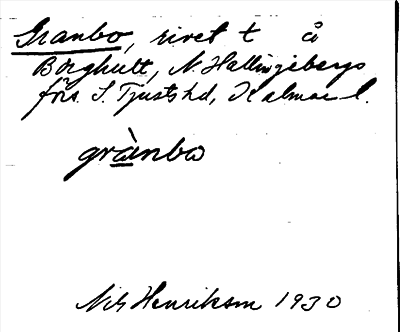 Granbo, rivet t å
Borghult, N. Hallingebergs
förs. S. Tjusts hd, Kalmar l.
grànbo
Nils Henriksm 1930